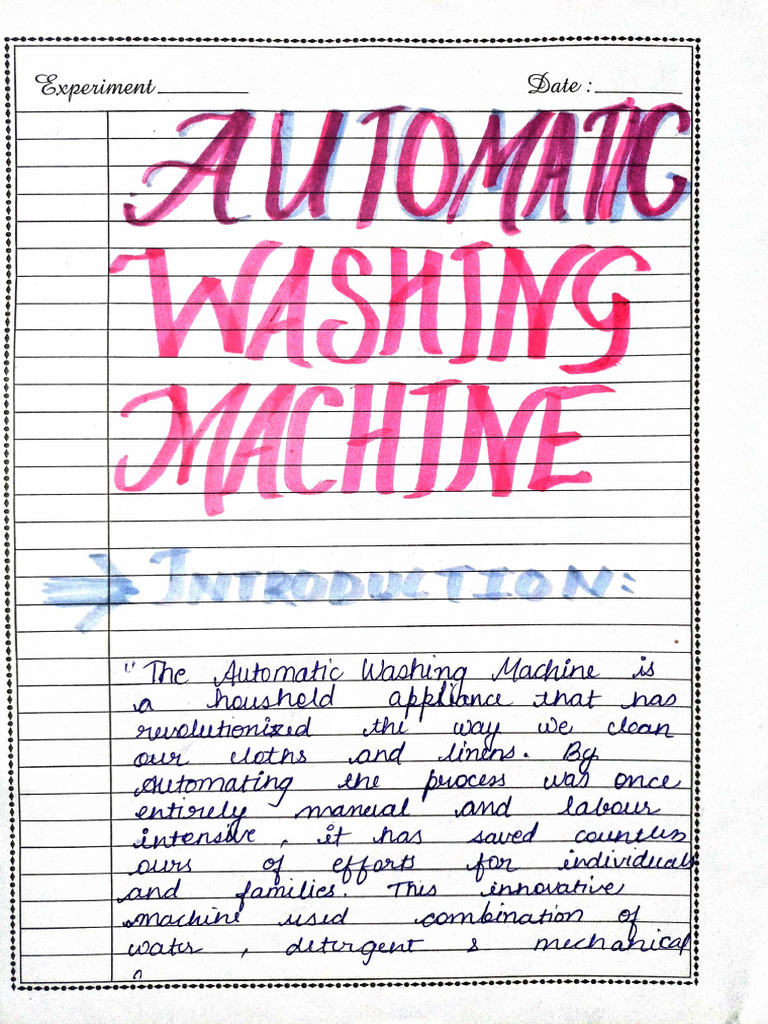 Experiment Date :
AUTOMATIC
WASHING
MACHINE
INTRODUCTION:
" The Automatic Washing Machine is
a houshold appliance that has
revolutionized the way we clean
our cloths and linens. By
Automating the process was once
entirely manual and labour
intensive , it has saved countless
ours of efforts for individuals
and families. This innovative
machine used combination of
water , detergent & mechanical